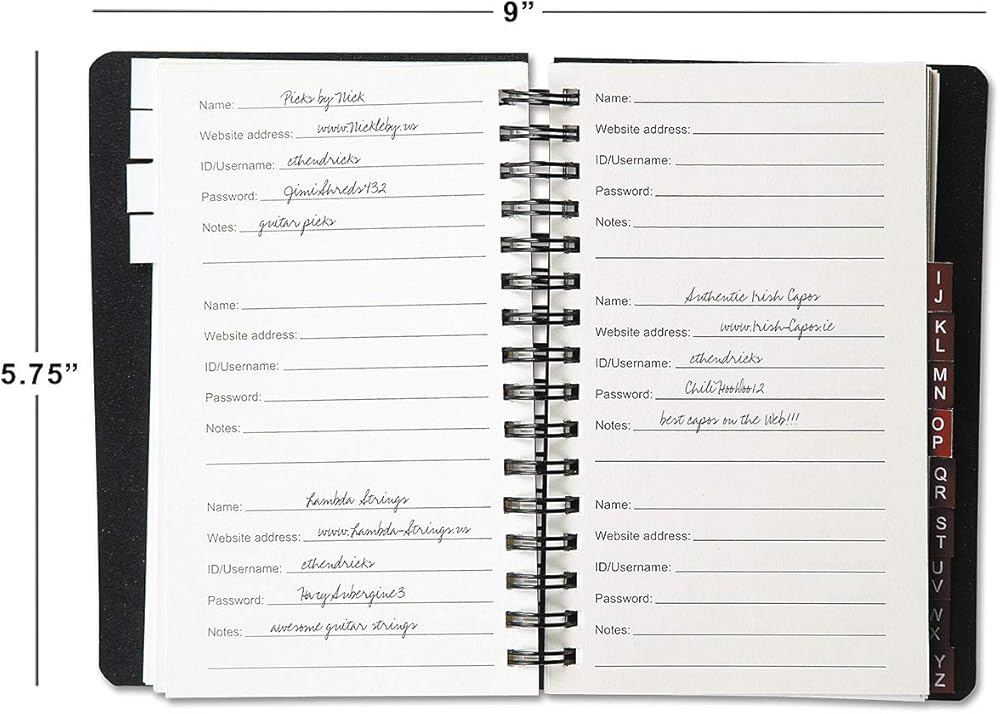 9”
5.75”
Name: Picks by Nick
Website address: www.Nickleby.us
ID/Username: ethendricks
Password: JimiShreds432
Notes: guitar picks
Name:
Website address:
ID/Username:
Password:
Notes:
Name: Lambda Strings
Website address: www.Lambda-Strings.us
ID/Username: ethendricks
Password: HazyAubergine3
Notes: awesome guitar strings
Name:
Website address:
ID/Username:
Password:
Notes:
Name: Authentic Irish Capos
Website address: www.Irish-Capos.ie
ID/Username: ethendricks
Password: ChiliHooDoo12
Notes: best capos on the Web!!!
Name:
Website address:
ID/Username:
Password:
Notes:
I
J
K
L
M
N
O
P
Q
R
S
T
U
V
W
X
Y
Z